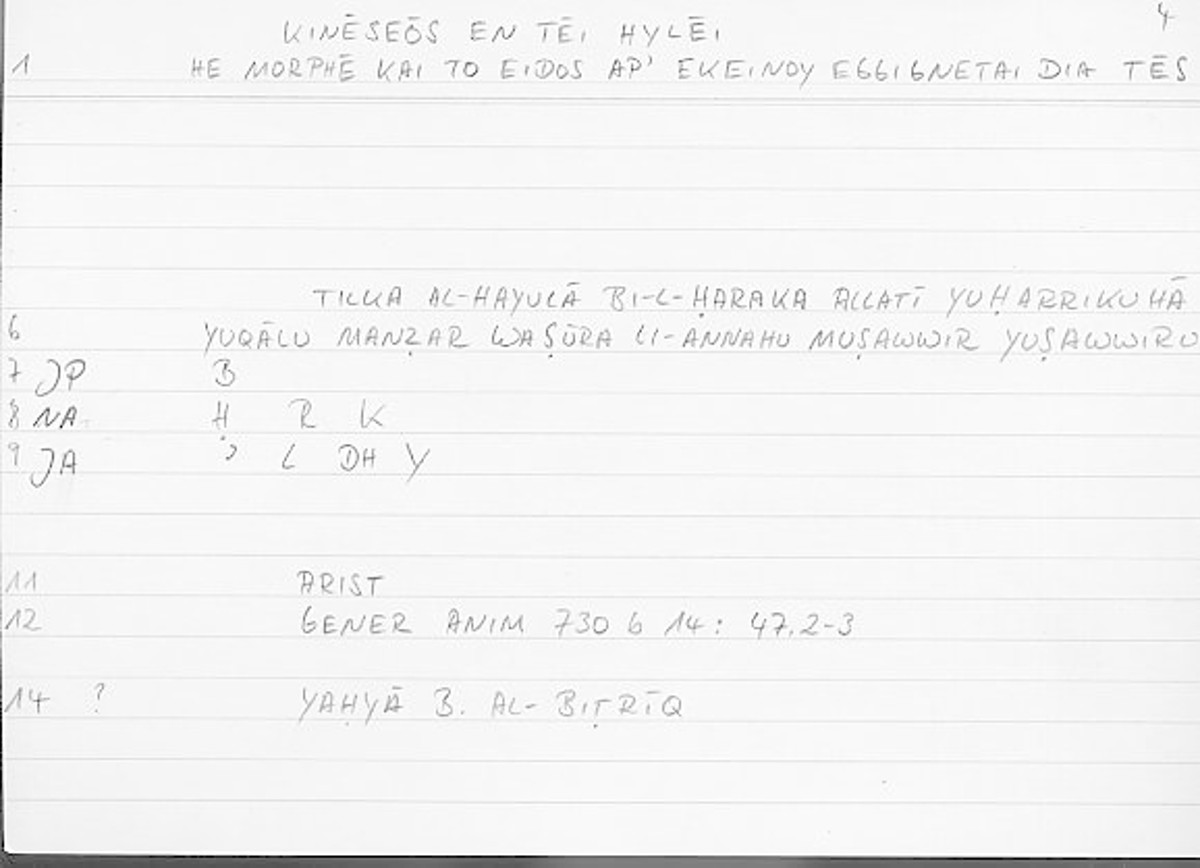 4
KINĒSEŌS EN TĒI HYLĒI
1 HE MORPHĒ KAI TO EIDOS AP' EKEINOY EGGIGNETAI DIA TĒS
TILKA AL-HAYULĀ BI-L-ḤARAKA ALLATĪ YUḤARRIKUHĀ
6 YUQĀLU MANẒAR WAṢŪRA LI-ANNAHU MUṢAWWIR YUṢAWWIRU
7 JP B
8 NA Ḥ R K
9 JA ' L DH Y
11 ARIST
12 GENER ANIM 730 b 14: 47.2-3
14 ? YAḤYĀ B. AL-BIṬRĪQ